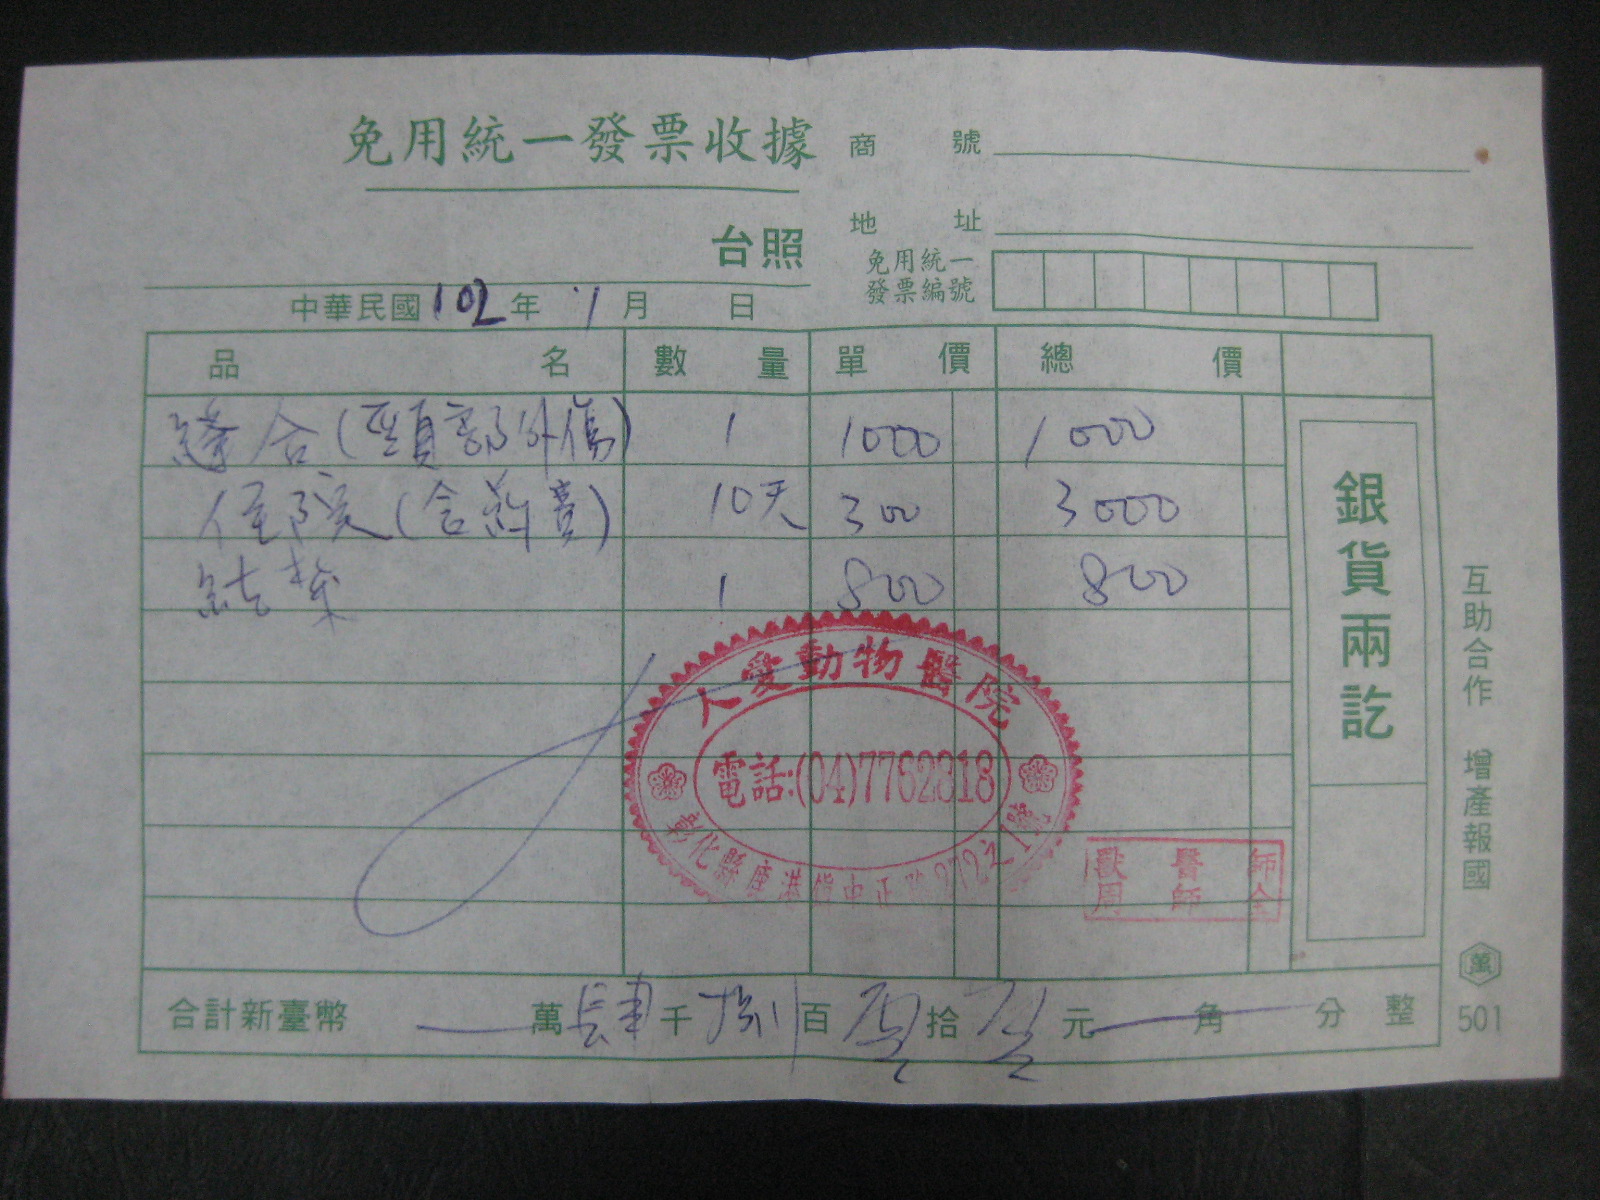 免用統一發票收據
商號
地址
台照
免用統一
發票編號
中華民國102年1月 日
品名 數量 單價 總價
縫合(頭部外傷) 1 1000 1000
住院(含葯費) 10天 300 3000
結紮 1 800 800
銀貨兩訖
人愛動物醫院
電話:(04)7762818
彰化縣鹿港鎮中正路
獸醫師
周師全
互助合作 增產報國
萬
501
合計新臺幣 萬肆千捌百零拾零元 角 分整